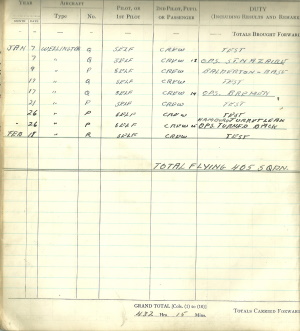 YEAR AIRCRAFT PILOT, OR 2ND PILOT, PUPIL DUTY
Type No. 1ST PILOT OR PASSENGER (INCLUDING RESULTS AND REMARKS
— — — — — TOTALS BROUGHT FORWARD
JAN 7 WELLINGTON Q SELF CREW TEST
7 " Q SELF CREW 13 OPS. ST. NAZAIRE
9 " P SELF CREW BALDERTON - BASE
17 " Q SELF CREW TEST
17 " Q SELF CREW 14 OPS. BREMEN
21 " P SELF CREW TEST
26 " P SELF CREW TEST
" 26 " P SELF CREW OPS. TURNED BACK
FEB 18 " R SELF CREW TEST
TOTAL FLYING 405 SQDN.
GRAND TOTAL [Cols. (1) to (10)]
432 Hrs. 15 Mins. TOTALS CARRIED FORWARD